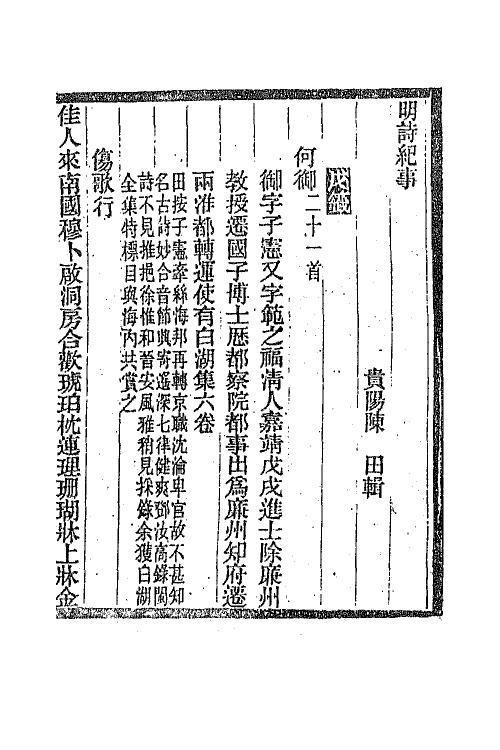 明詩紀事
貴陽陳 田輯
戊籤
何御二十一首
御字子憲又字範之福清人嘉靖戊戌進士除廉州
教授遷國子博士歷都察院都事出爲廉州知府遷
兩淮都轉運使有白湖集六卷
田按子憲牽絲海邦再轉京職沈淪卑官故不甚知
名古詩妙合音節興寄遙深七律健爽鄧汝高錄閩
詩不見推挹徐惟和晉安風雅稍見採錄余獲白湖
全集特標目與海內共賞之
傷歌行
佳人來南國穆卜啟洞房合歡琥珀枕連理珊瑚牀上牀金